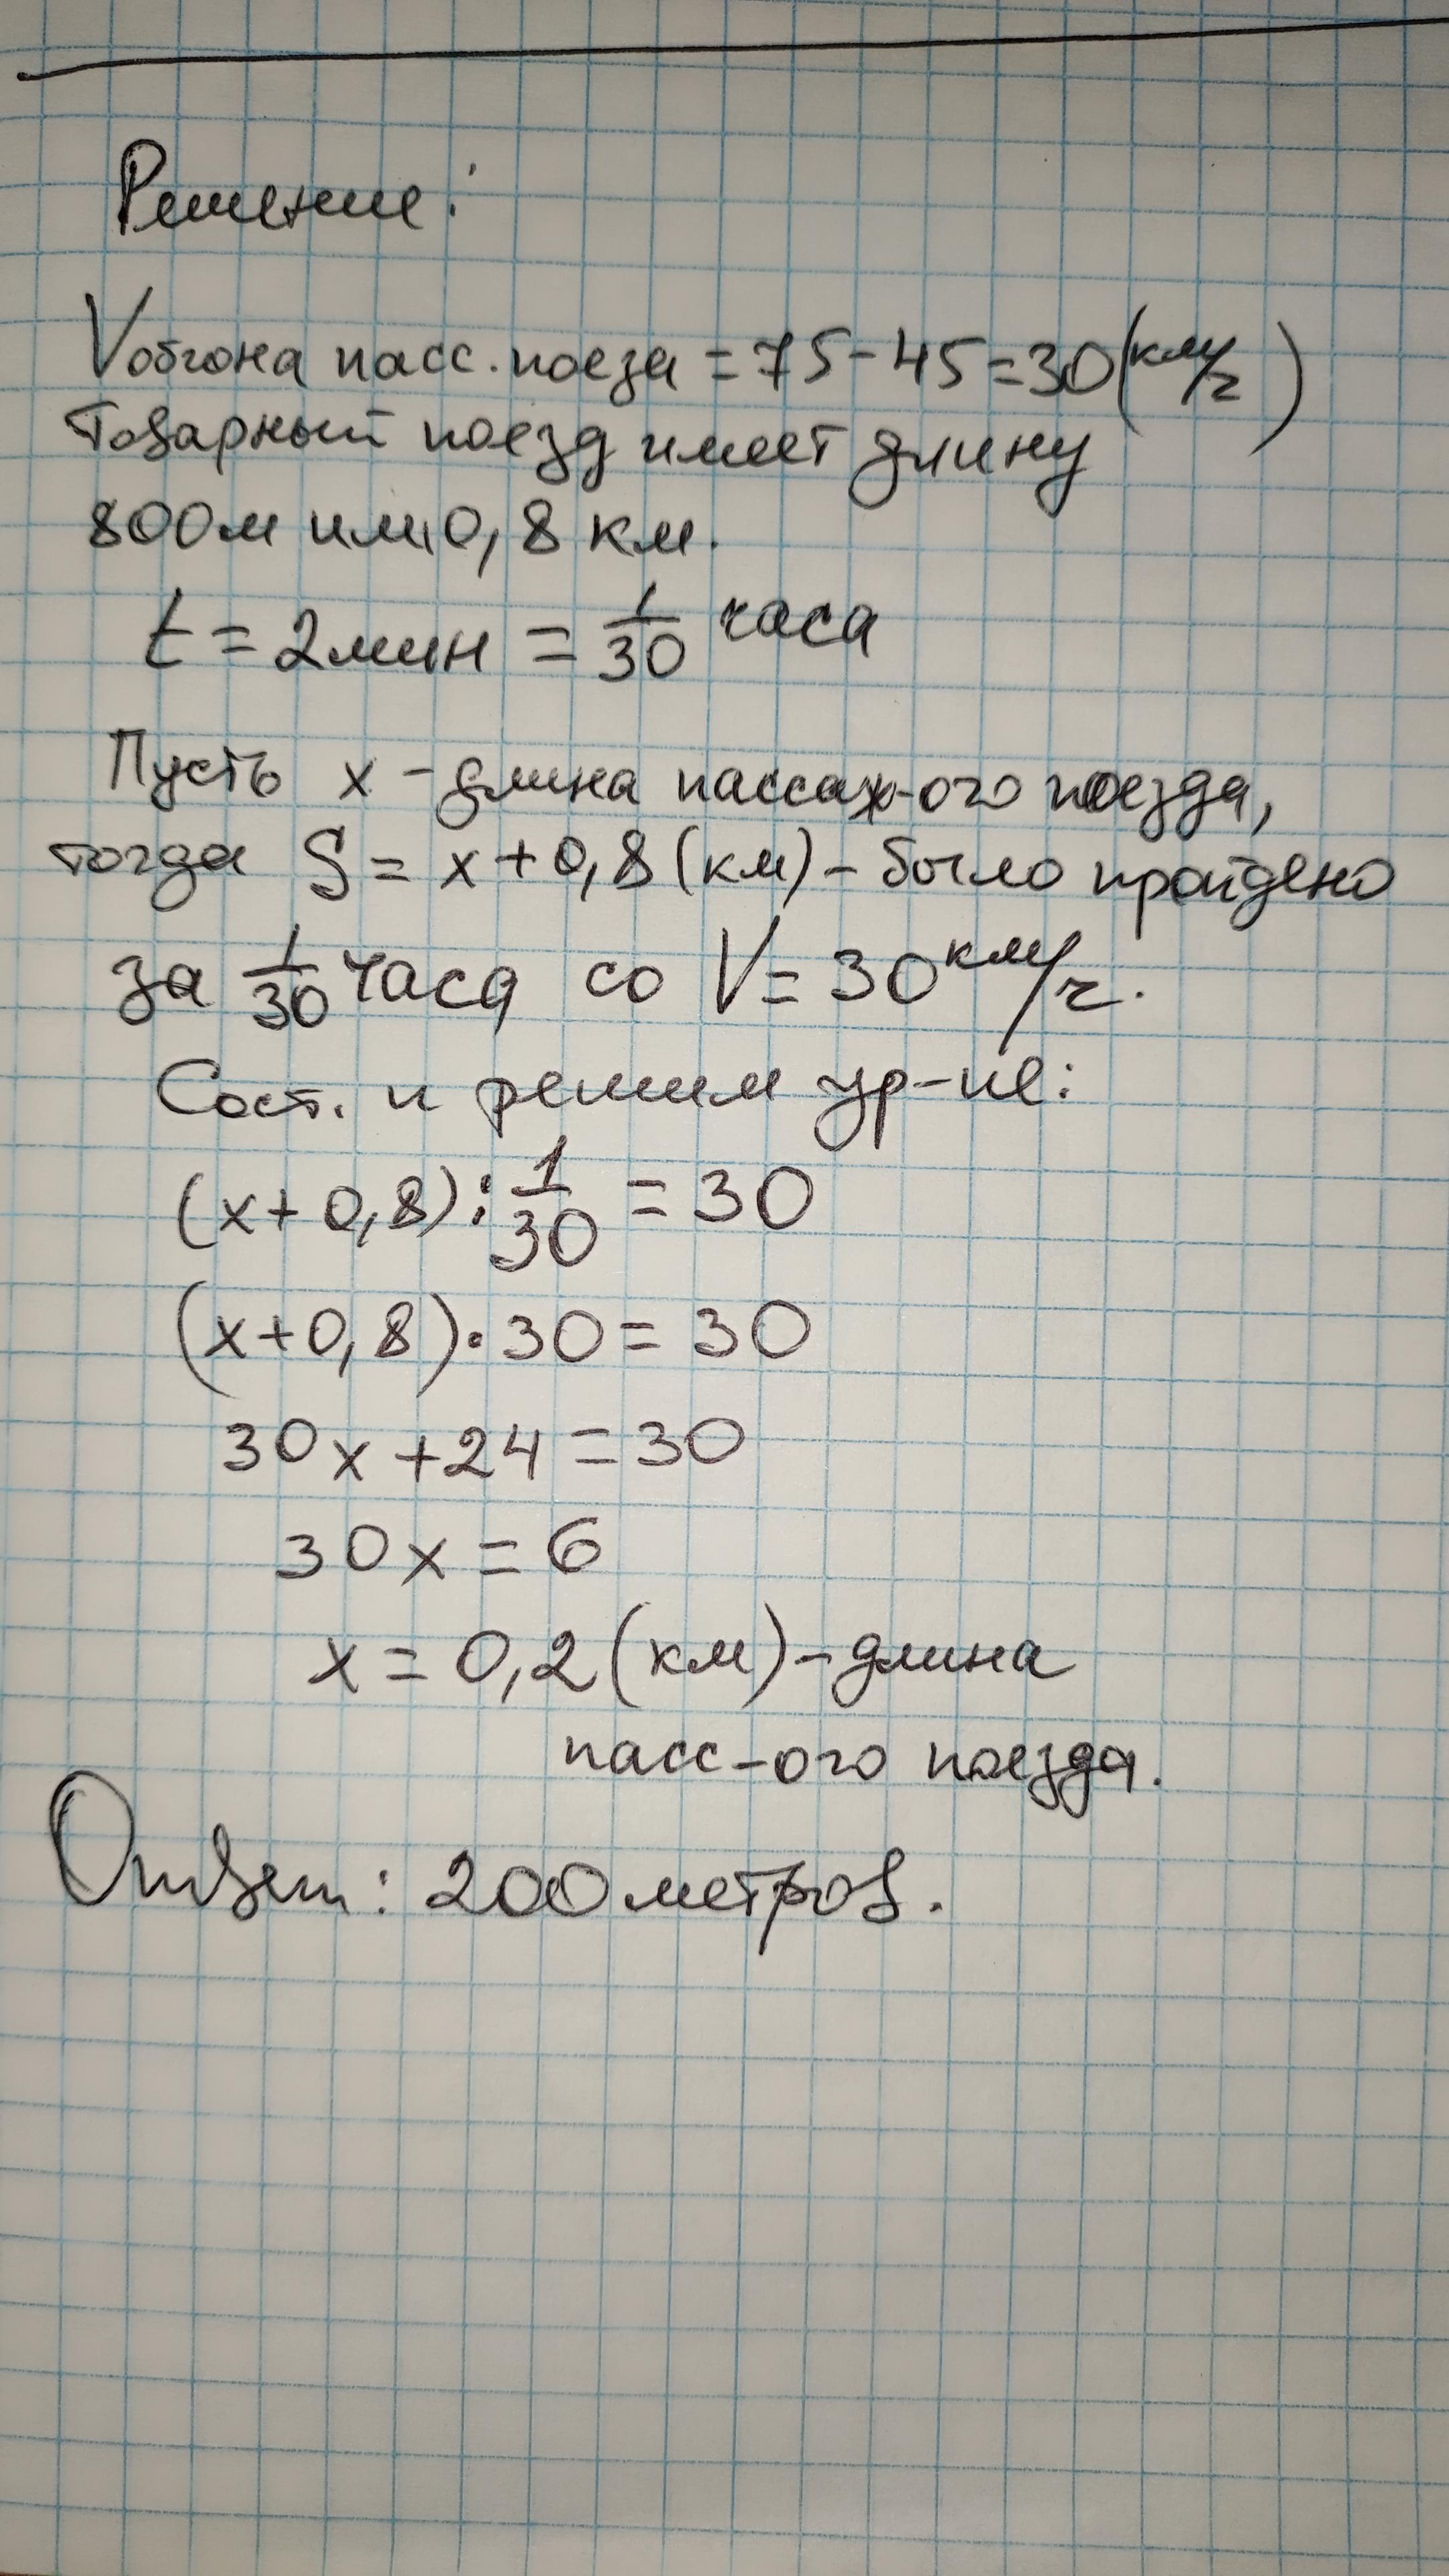 Решение:
Vобгона пасс. поеза = 75 - 45 = 30 (км/ч)
Товарный поезд имеет длину
800м или 0,8 км.
t = 2мин = 1/30 часа
Пусть x - длина пассаж-ого поезда,
тогда S = x + 0,8 (км) - было пройдено
за 1/30 часа со V = 30 км/ч.
Сост. и решим ур-ие:
(x + 0,8) : 1/30 = 30
(x + 0,8) · 30 = 30
30x + 24 = 30
30x = 6
x = 0,2 (км) - длина
пасс-ого поезда.
Ответ: 200 метров.